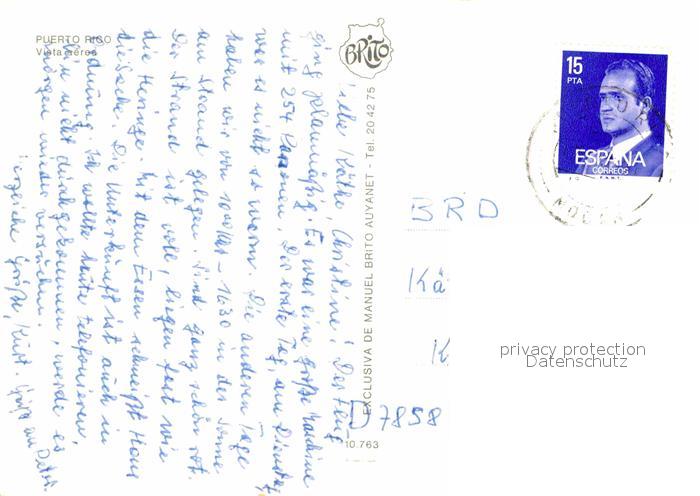 PUERTO RICO
Vista aérea
BRITO
Liebe Käthe, Christine! Der Flug
ging planmäßig. Es war eine große Maschine
mit 254 Personen. Der erste Tag, am Dienstag
war es nicht so warm. Die anderen Tage
haben wir von 10 Uhr - 16.30 in der Sonne
am Strand gelegen. Sind ganz schön rot.
Der Strand ist voll, liegen fast wie
die Heringe. Mit dem Essen schmeißt Hans
die Sache. Die Unterkunft ist auch in
Ordnung. Ich wollte heute telefonieren,
bin nicht durchgekommen, werde es
morgen wieder versuchen.
Grüße, Kurt. Gruß an Detl.
EXCLUSIVA DE MANUEL BRITO AUYANET - Tel. 20 42 75
10.763
15
PTA
ESPAÑA
CORREOS
F.N.M.T.
BRD
Kä
K
D 7858
privacy protection
Datenschutz